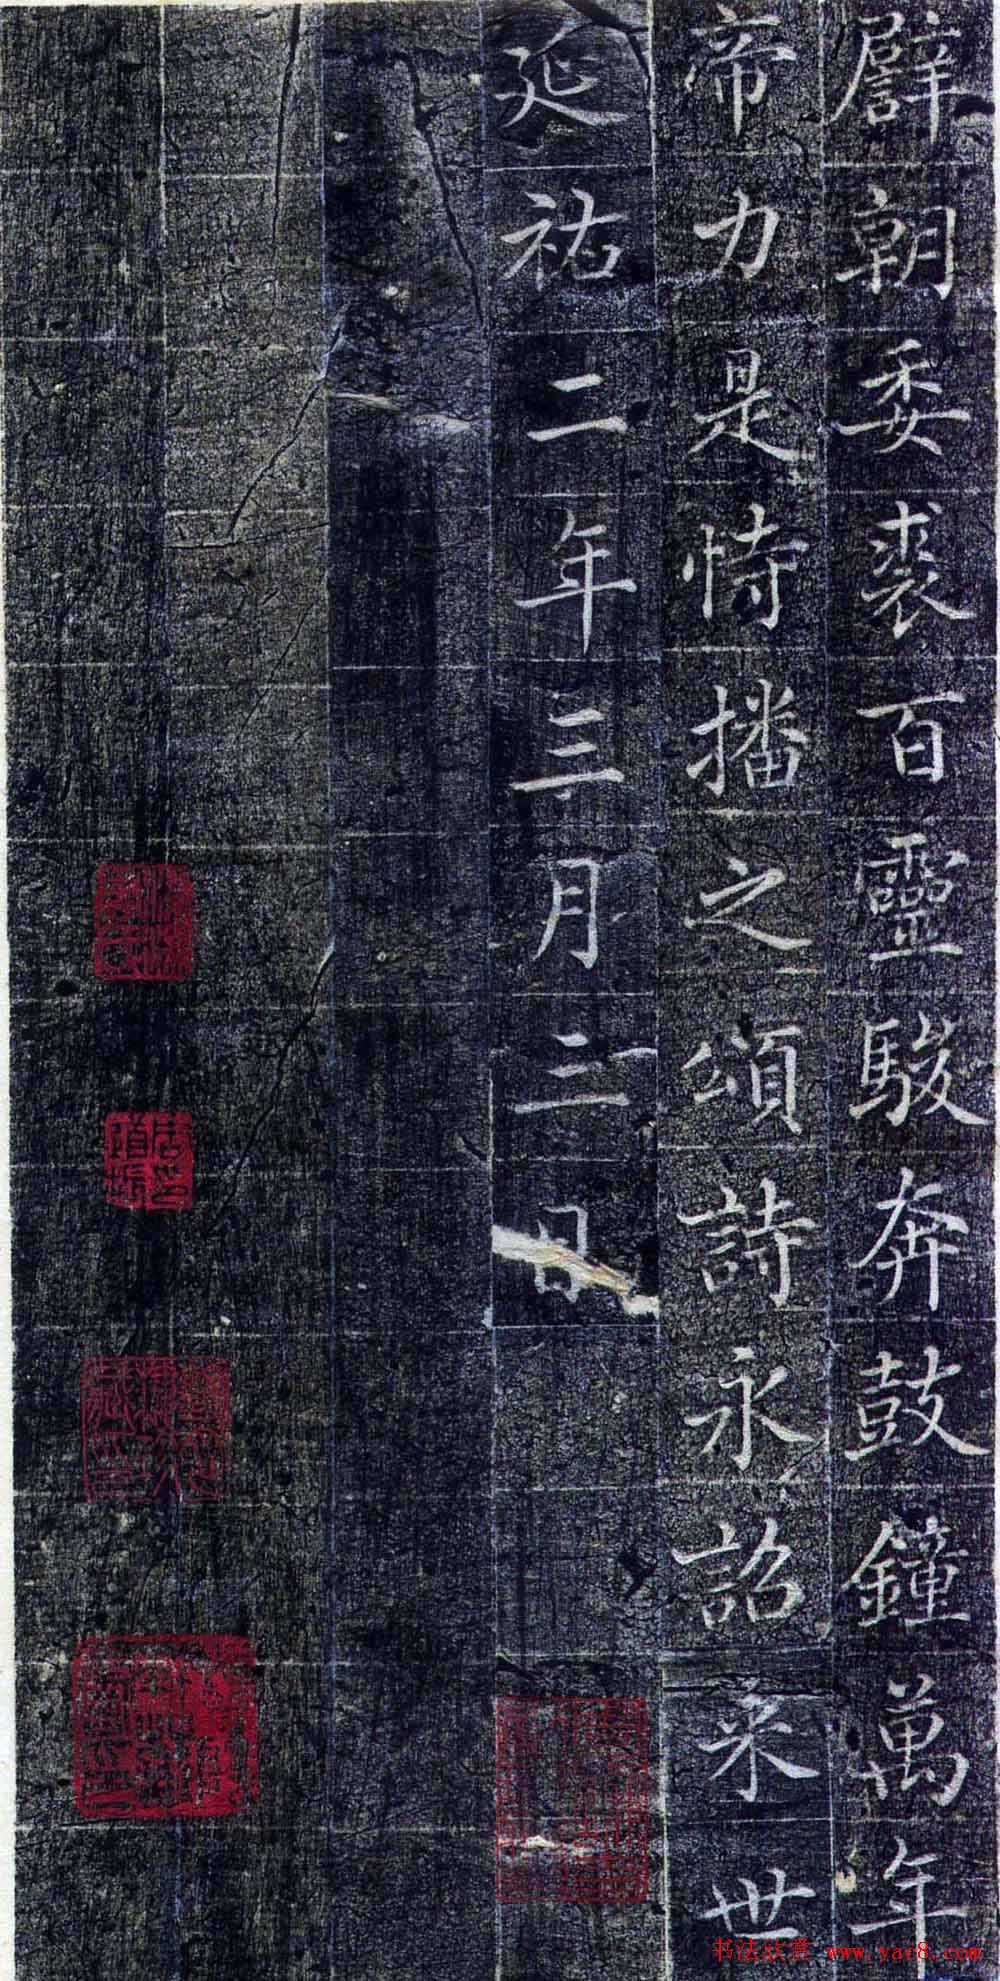 譬朝委裘百靈駿奔鼓鐘萬年
帝力是恃播之頌詩永詔来世
延祐二年三月三日
书法欣赏 www.yac8.com